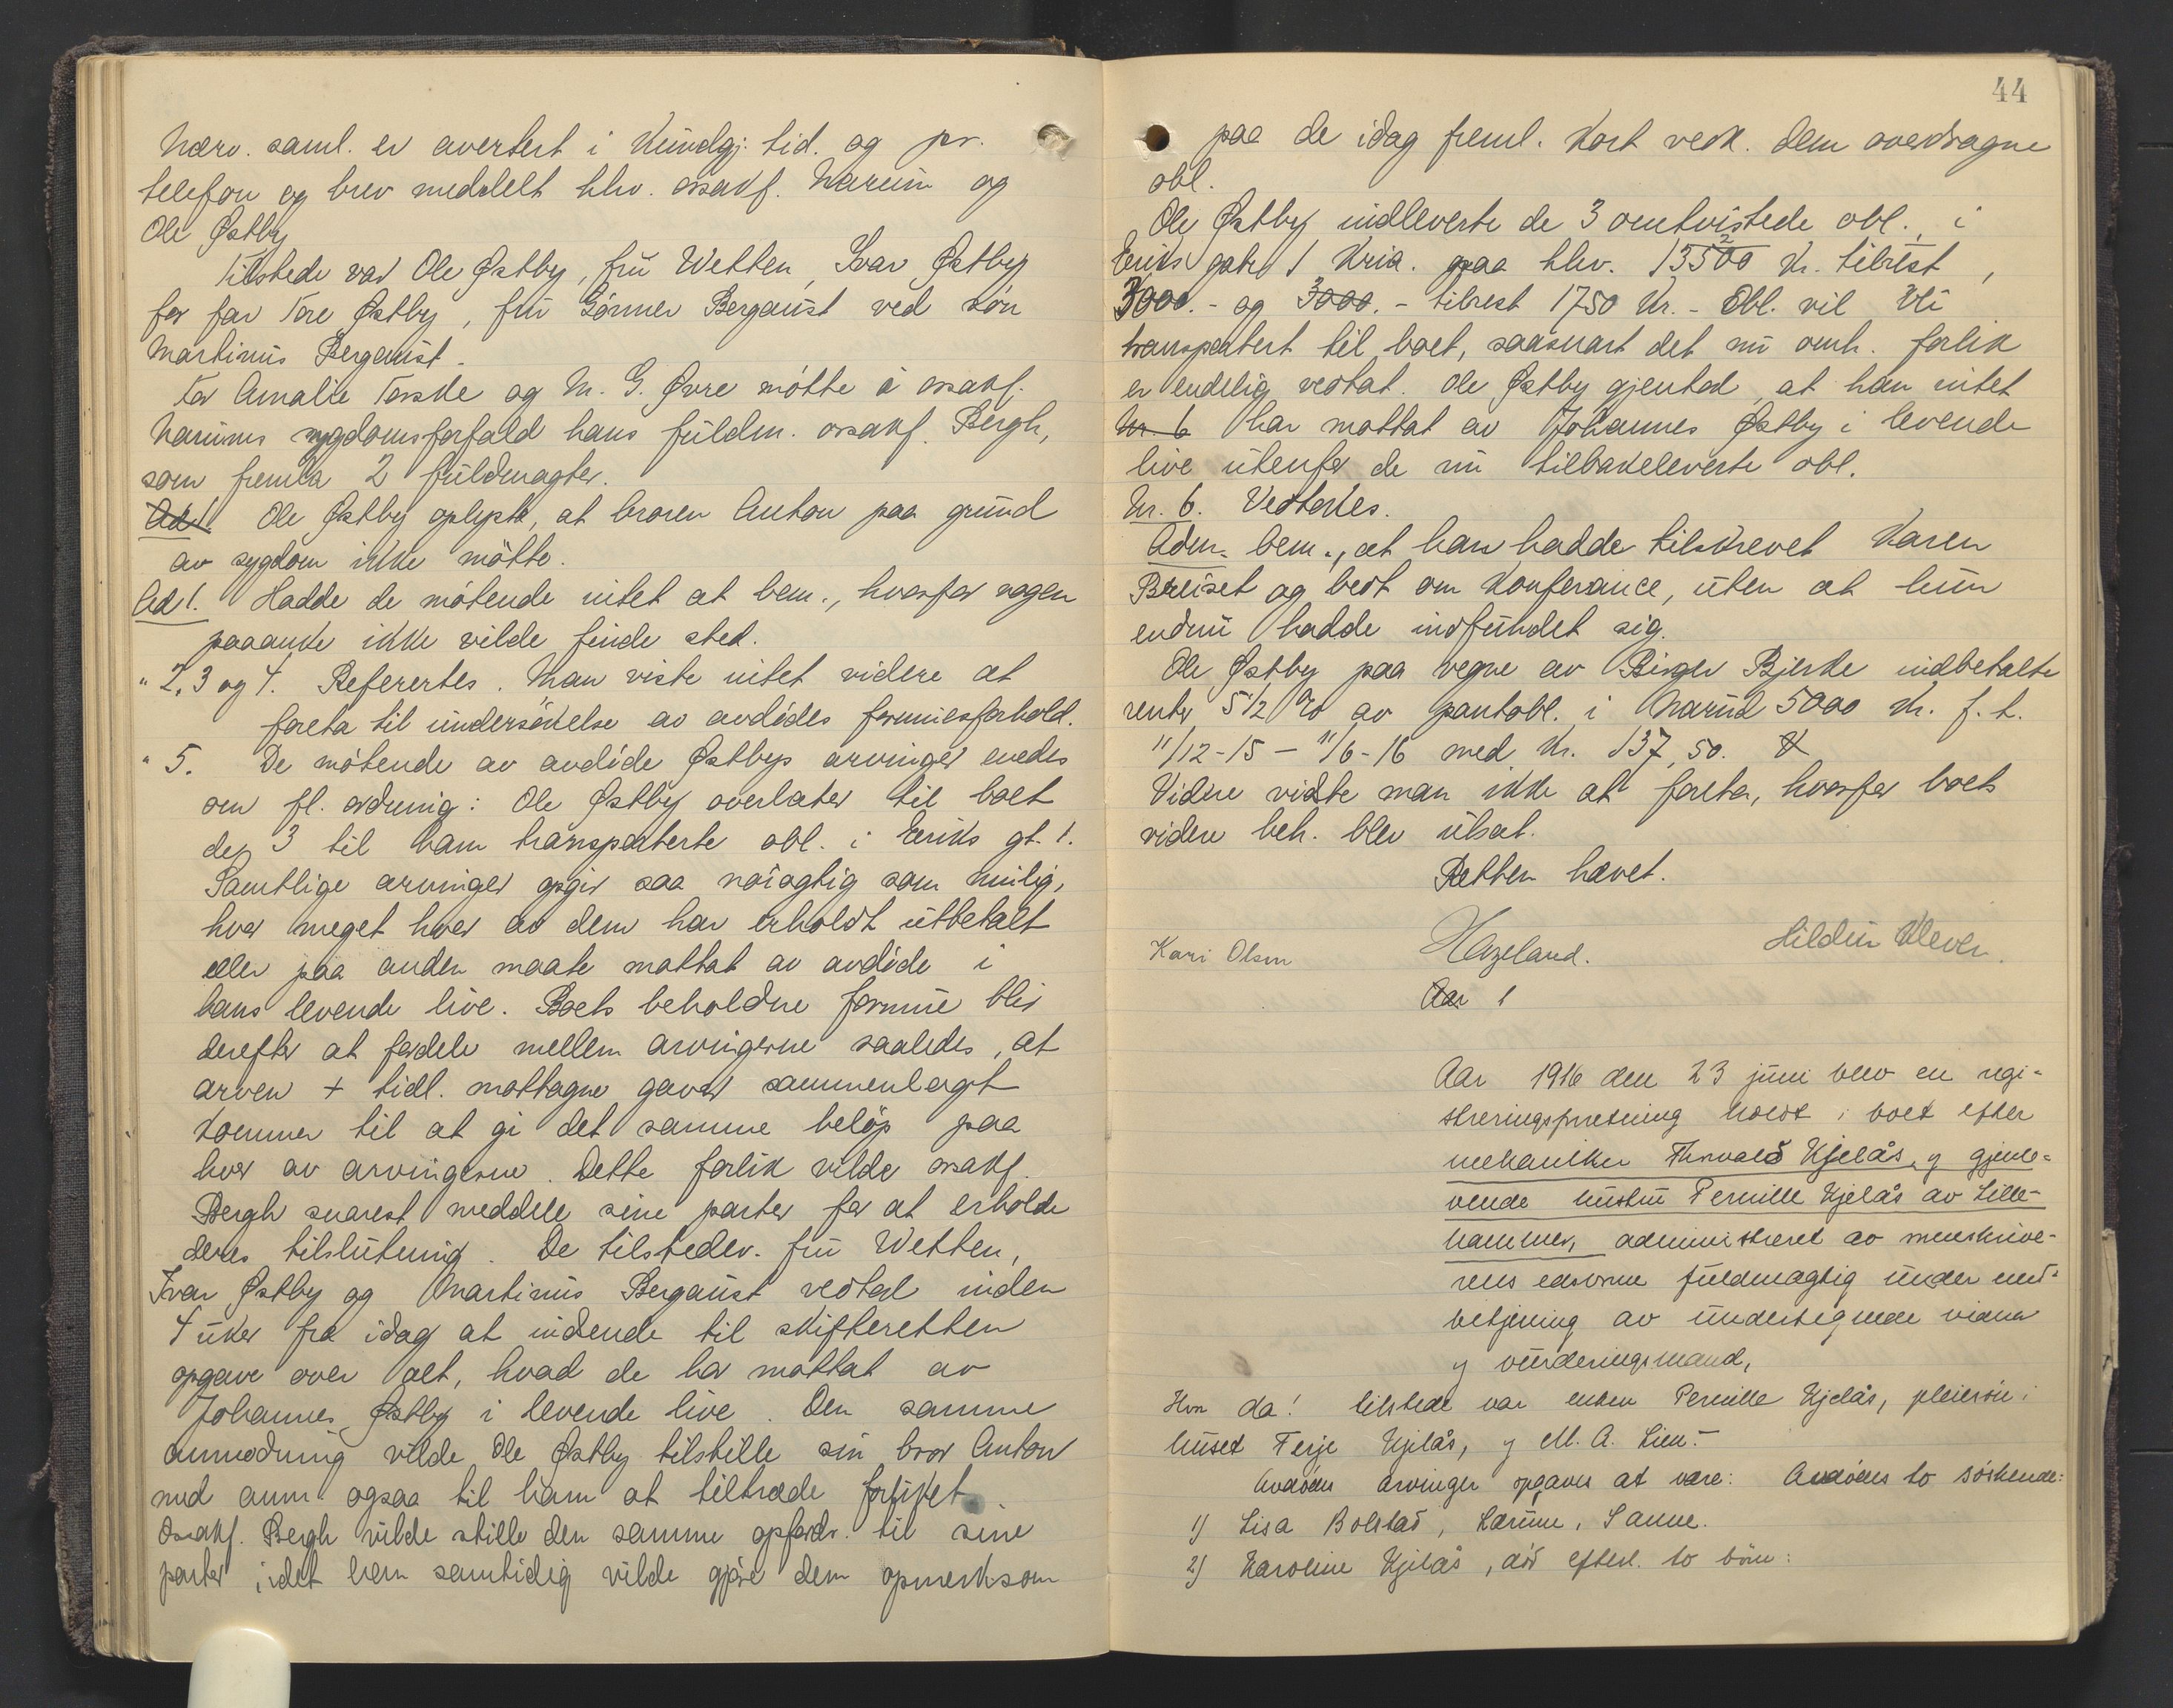 Nærv. saml. er avertert i Kundgj. tid. og pr.
telefon og brev meddelt hhv. ossakf. Narum og
Ole Østby
Tilstede var Ole Østby, fru Wetten, Ivar Østby
for far Tore Østby, fru Gönner Bergquist ved sön
Martinus Bergquist.
For Amalie Torske og M. G. Øvre mötte i ossakf.
Narums sygdomsforfald hans fuldm. ossakf. Bergh,
som fremla 2 fuldmagter.
Ad 1. Ole Østby oplyste, at broren Anton paa grund
av sygdom ikke mötte.
Ad 1. Hadde de mötende intet at bem., hvorfor nogen
paaanke ikke vilde finde sted.
" 2, 3 og 4. Referertes. Man viste intet videre at
foreta til undersökelse av avdödes formuesforhold.
" 5. De mötende av avdöde Østbys arvinger enedes
om fl. ordning: Ole Østby overlater til boet
de 3 til ham transporterte obl. i Eriks gt. 1.
Samtlige arvinger opgir saa nöiagtig som mulig,
hvor meget hver av dem har erholdt utbetalt
eller paa anden maate mottat av avdöde i
hans levende live. Boets beholdne formue blir
derefter at fordele mellem arvingerne saaledes, at
arven + tidl. mottagne gaver sammenlagt
kommer til at gi det samme belöp paa
hver av arvingerne. Dette forlik vilde ossakf.
Bergh snarest meddele sine parter for at erholde
deres tilslutning. De tilstedev. fru Wetten,
Ivar Østby og Martinus Bergquist vedtok inden
4 uker fra idag at indsende til skifteretten
opgave over alt, hvad de har mottat av
Johannes Østby i levende live. Den samme
anmodning vilde Ole Østby tilstille sin bror Anton
med anm. ogsaa til ham at tiltræde forliket.
Ossakf. Bergh vilde stille den samme opfordr. til sine
parter, idet han samtidig vilde gjöre dem opmerksom
44
paa de idag freml. kort vedk. dem overdragne
obl.
Ole Østby indleverte de 3 omtvistede obl., i
Eriks gate 1 Kria. paa hhv. 13500 kr. tilrest,
3000.- og 3000.- tilrest 1750 kr. - Obl. vil bli
transportert til boet, saasnart det nu omh. forlik
er endelig vedtat. Ole Østby gjentok, at han intet
Nr. 6 har mottat av Johannes Østby i levende
live utenfor de nu tilbakeleverte obl.
Nr. 6. Vedtokes.
Adm. bem., at han hadde tilskrevet Karen
Breiset og bedt om konferance, uten at hun
endnu hadde indfundet sig.
Ole Østby paa vegne av Birger Bjerke indbetalte
renter 5 1/2 % av pantobl. i Narud 5000 kr. f. t.
11/12-15 - 11/6-16 med kr. 137,50.
Videre vidste man ikke at foreta, hvorfor boets
videre beh. blev utsat.
Retten hævet.
Kari Olsen Hazeland. Hildur Kleven.
Aar 1
Aar 1916 den 23 juni blev en regi-
streringsforretning holdt i boet efter
mekaniker Thorvald Kjelås, og gjenle-
vende hustru Pernille Kjelås av Lille-
hammer, administreret av sorenskrive-
rens edsvorne fuldmægtig under med-
betjening av undertegnede vidner
og vurderingsmænd,
Hvor da! tilstede var enken Pernille Kjelås, pleiersön i
huset Terje Kjelås, og M. A. Lien.-
Avdödes arvinger opgaves at være: Avdödes to söskende:
1) Lisa Bolstad, Sanne.
2) Karoline Kjelås, död efterl. to börn: